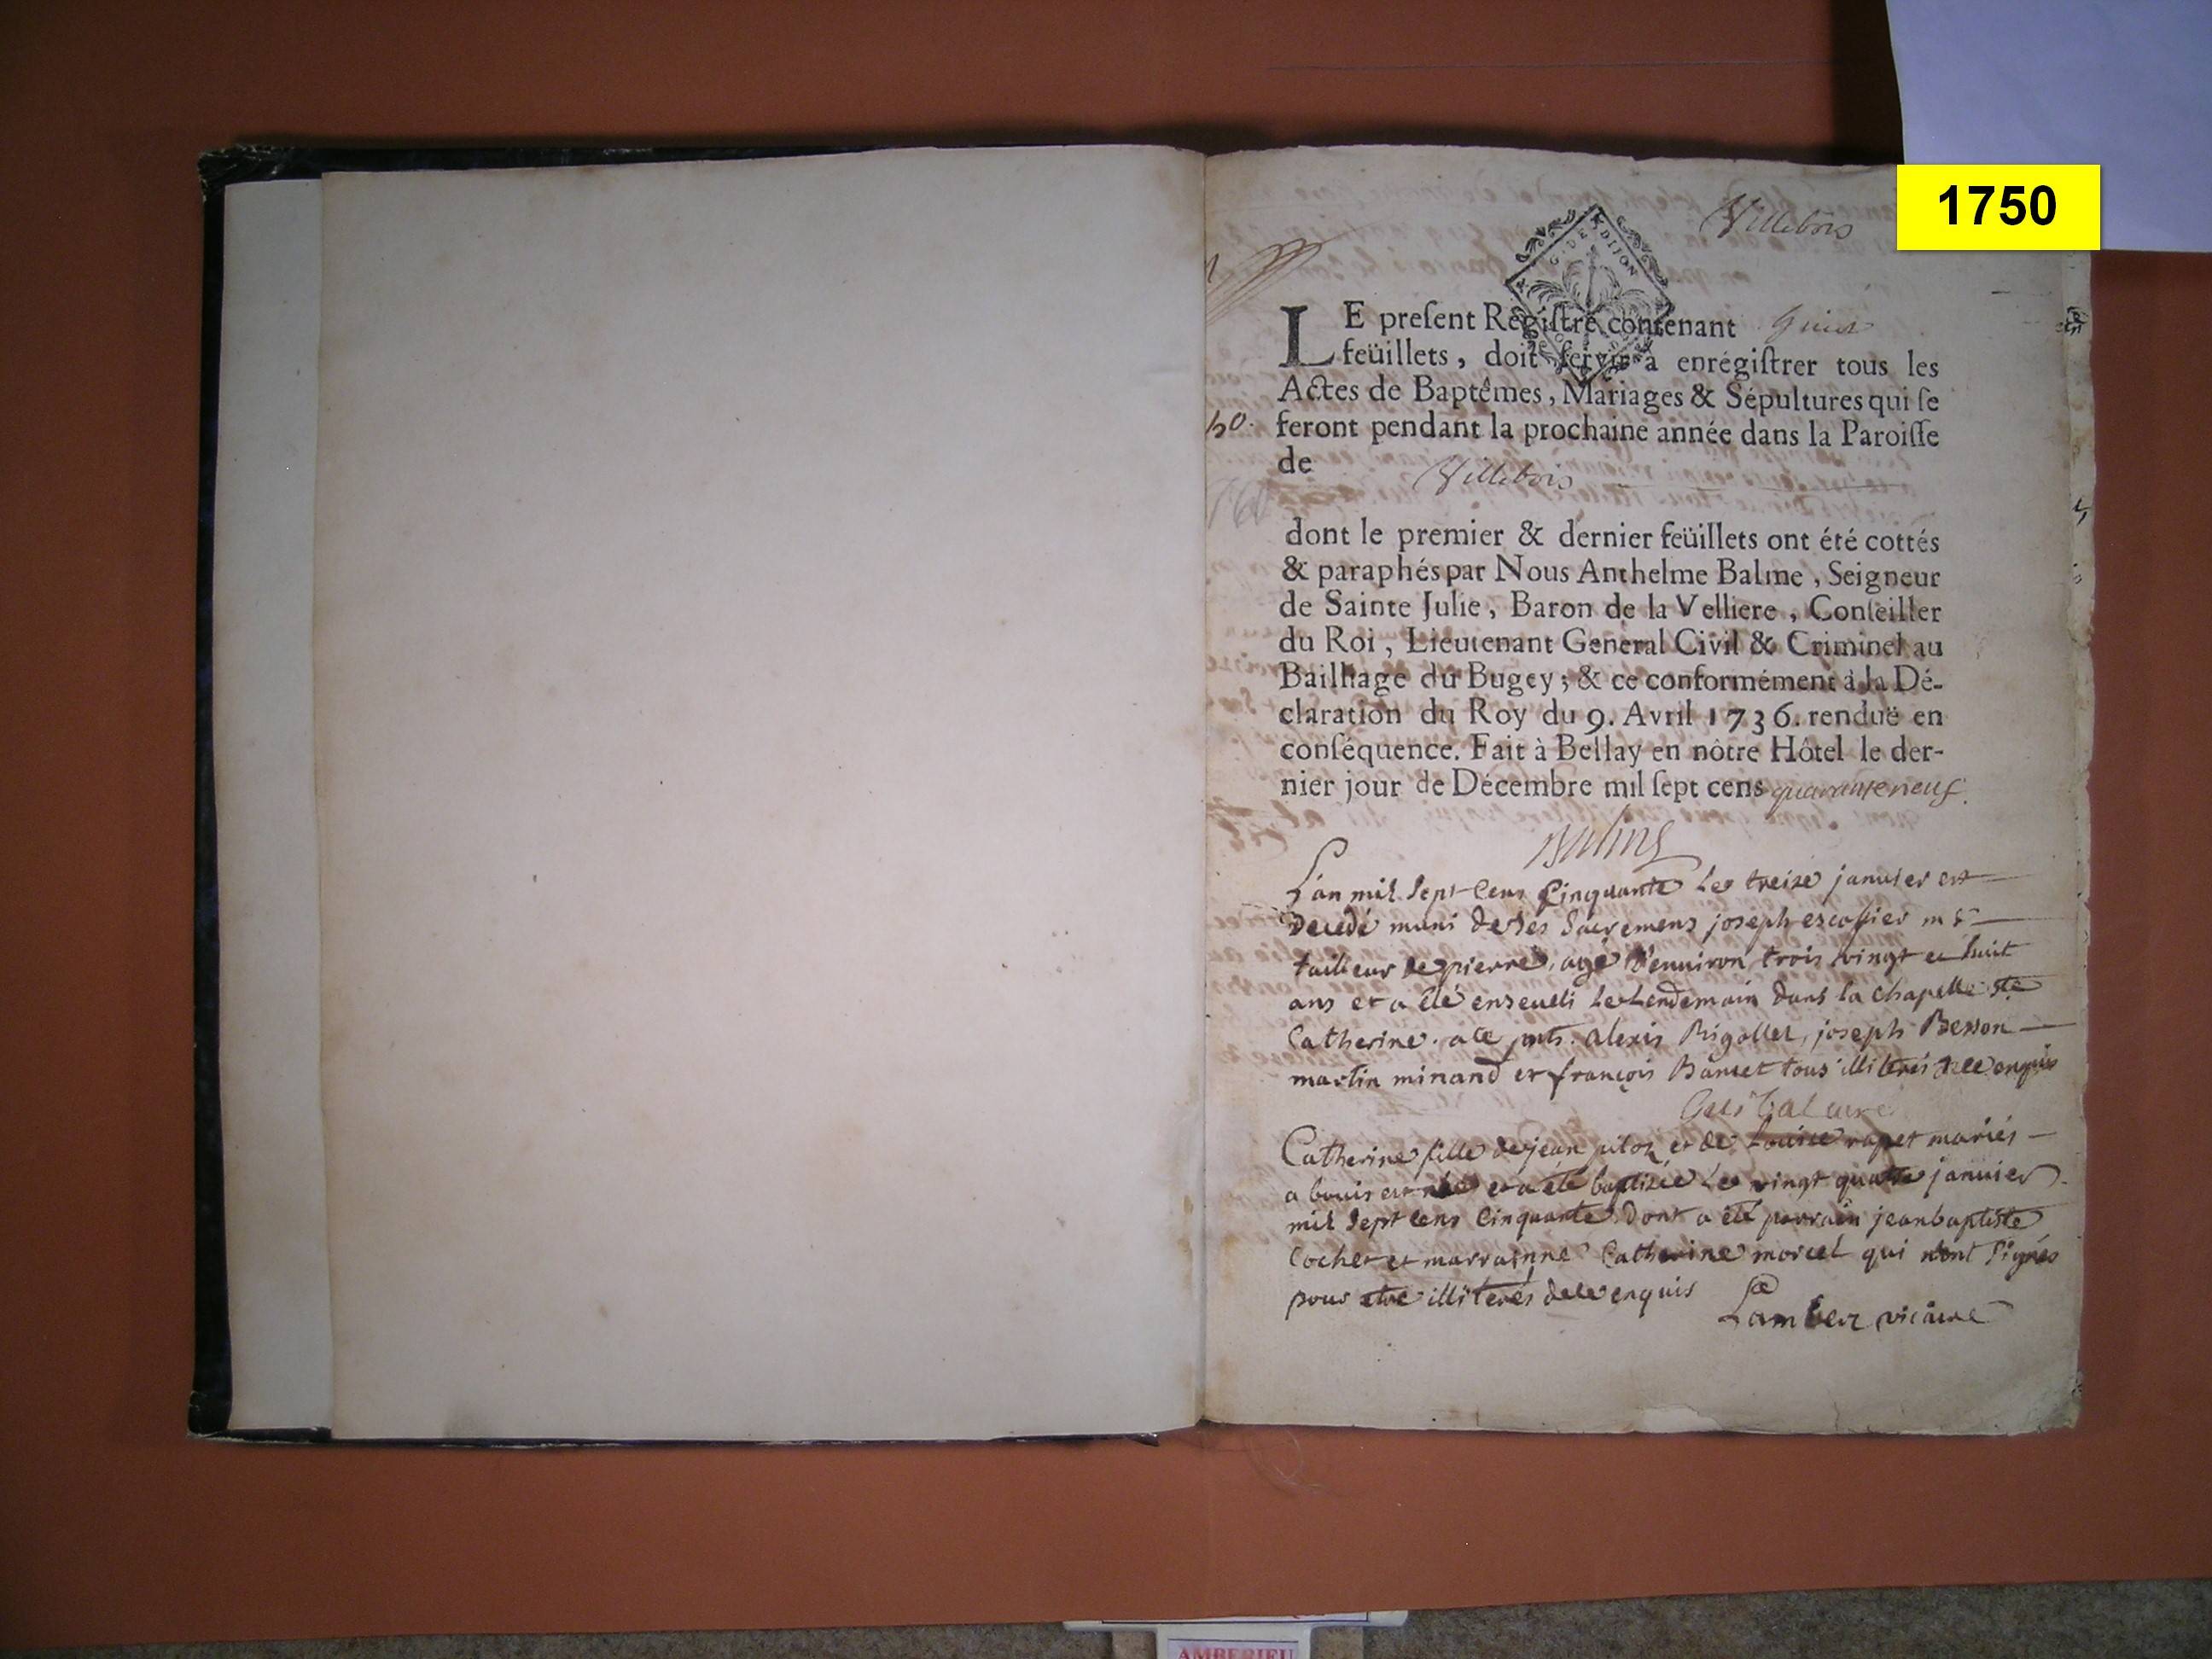 1750
Villebois
G DE DIJON
LE preſent Régiſtre contenant
feüillets, doit ſervir à enrégiſtrer tous les
Actes de Baptêmes, Mariages & Sépultures qui ſe
feront pendant la prochaine année dans la Paroiſſe
de Villebois
dont le premier & dernier feüillets ont été cottés
& paraphés par Nous Anthelme Balme, Seigneur
de Sainte Julie, Baron de la Velliere, Conſeiller
du Roi, Lieutenant General Civil & Criminel au
Bailliage du Bugey; & ce conformément à la Dé-
claration du Roy du 9. Avril 1736. renduë en
conſéquence. Fait à Bellay en nôtre Hôtel le der-
nier jour de Décembre mil ſept cens quaranteneuf.
Balme
L'an mil sept cens cinquante le treize janvier est
decedé muni de ses sacremens joseph escoffier mtr
tailleur de pierre, agé d'environ trois vingt et huit
ans et a été enseveli le lendemain dans la chapelle ste
Catherine. a ce pnts. alexis Rigollet, joseph Besson
martin minand et françois tous illiterés de ce enquis
curé
Catherine fille de jean pitoz et de Louise rapet mariés
a bouis est née et a été baptisée le vingt quatre janvier
mil sept cens cinquante dont a été parrain jeanbaptiste
Cochet et marrainne Catherine morcel qui n'ont signés
pour etre illiterés de ce enquis
Lambert vicaire
AMBERIEU